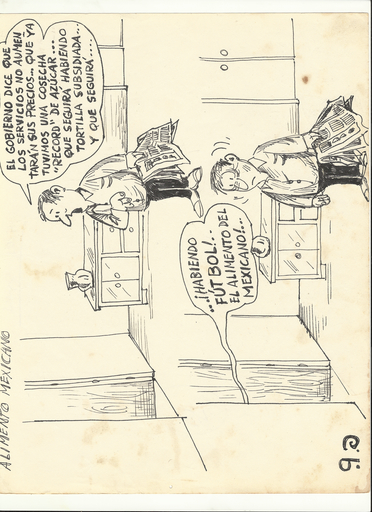 ALIMENTO MEXICANO
EL GOBIERNO DICE QUE
LOS SERVICIOS NO AUMEN
TARÁN SUS PRECIOS... QUE YA
TUVIMOS UNA COSECHA
"RECORD" DE AZÚCAR...
QUE SEGUIRÁ HABIENDO
TORTILLA SUBSIDIADA..
Y QUE SEGUIRÁ....
...¡HABIENDO
FÚTBOL!..
EL ALIMENTO DEL
MEXICANO!...